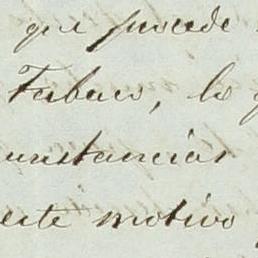 que procede
Tabaco, lo
cunstancias
este motivo